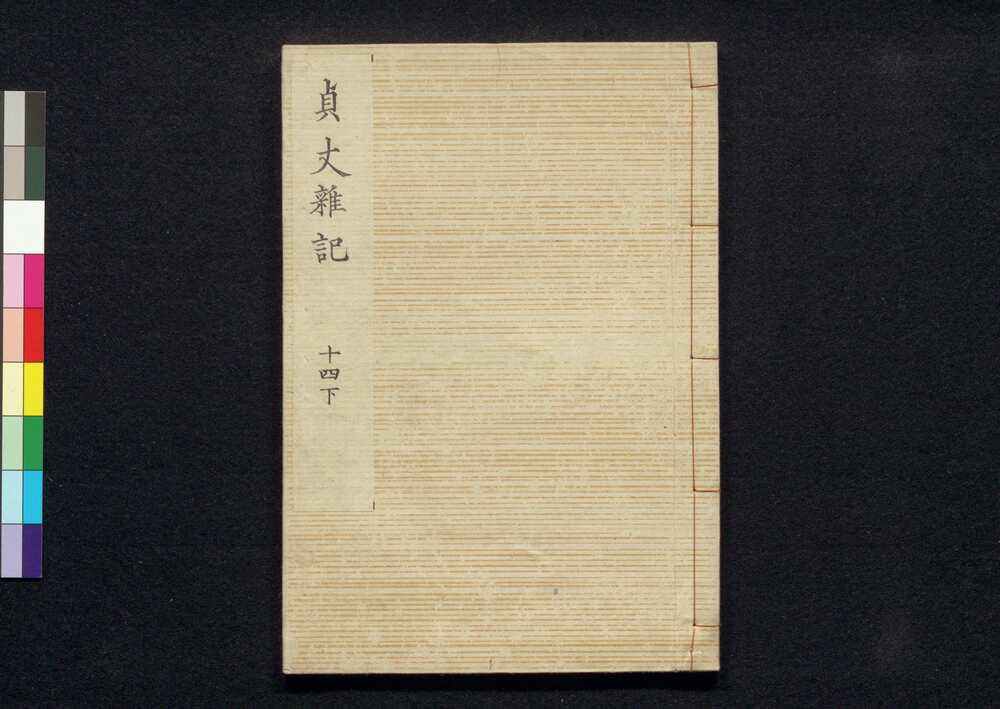 貞丈雜記
十四下